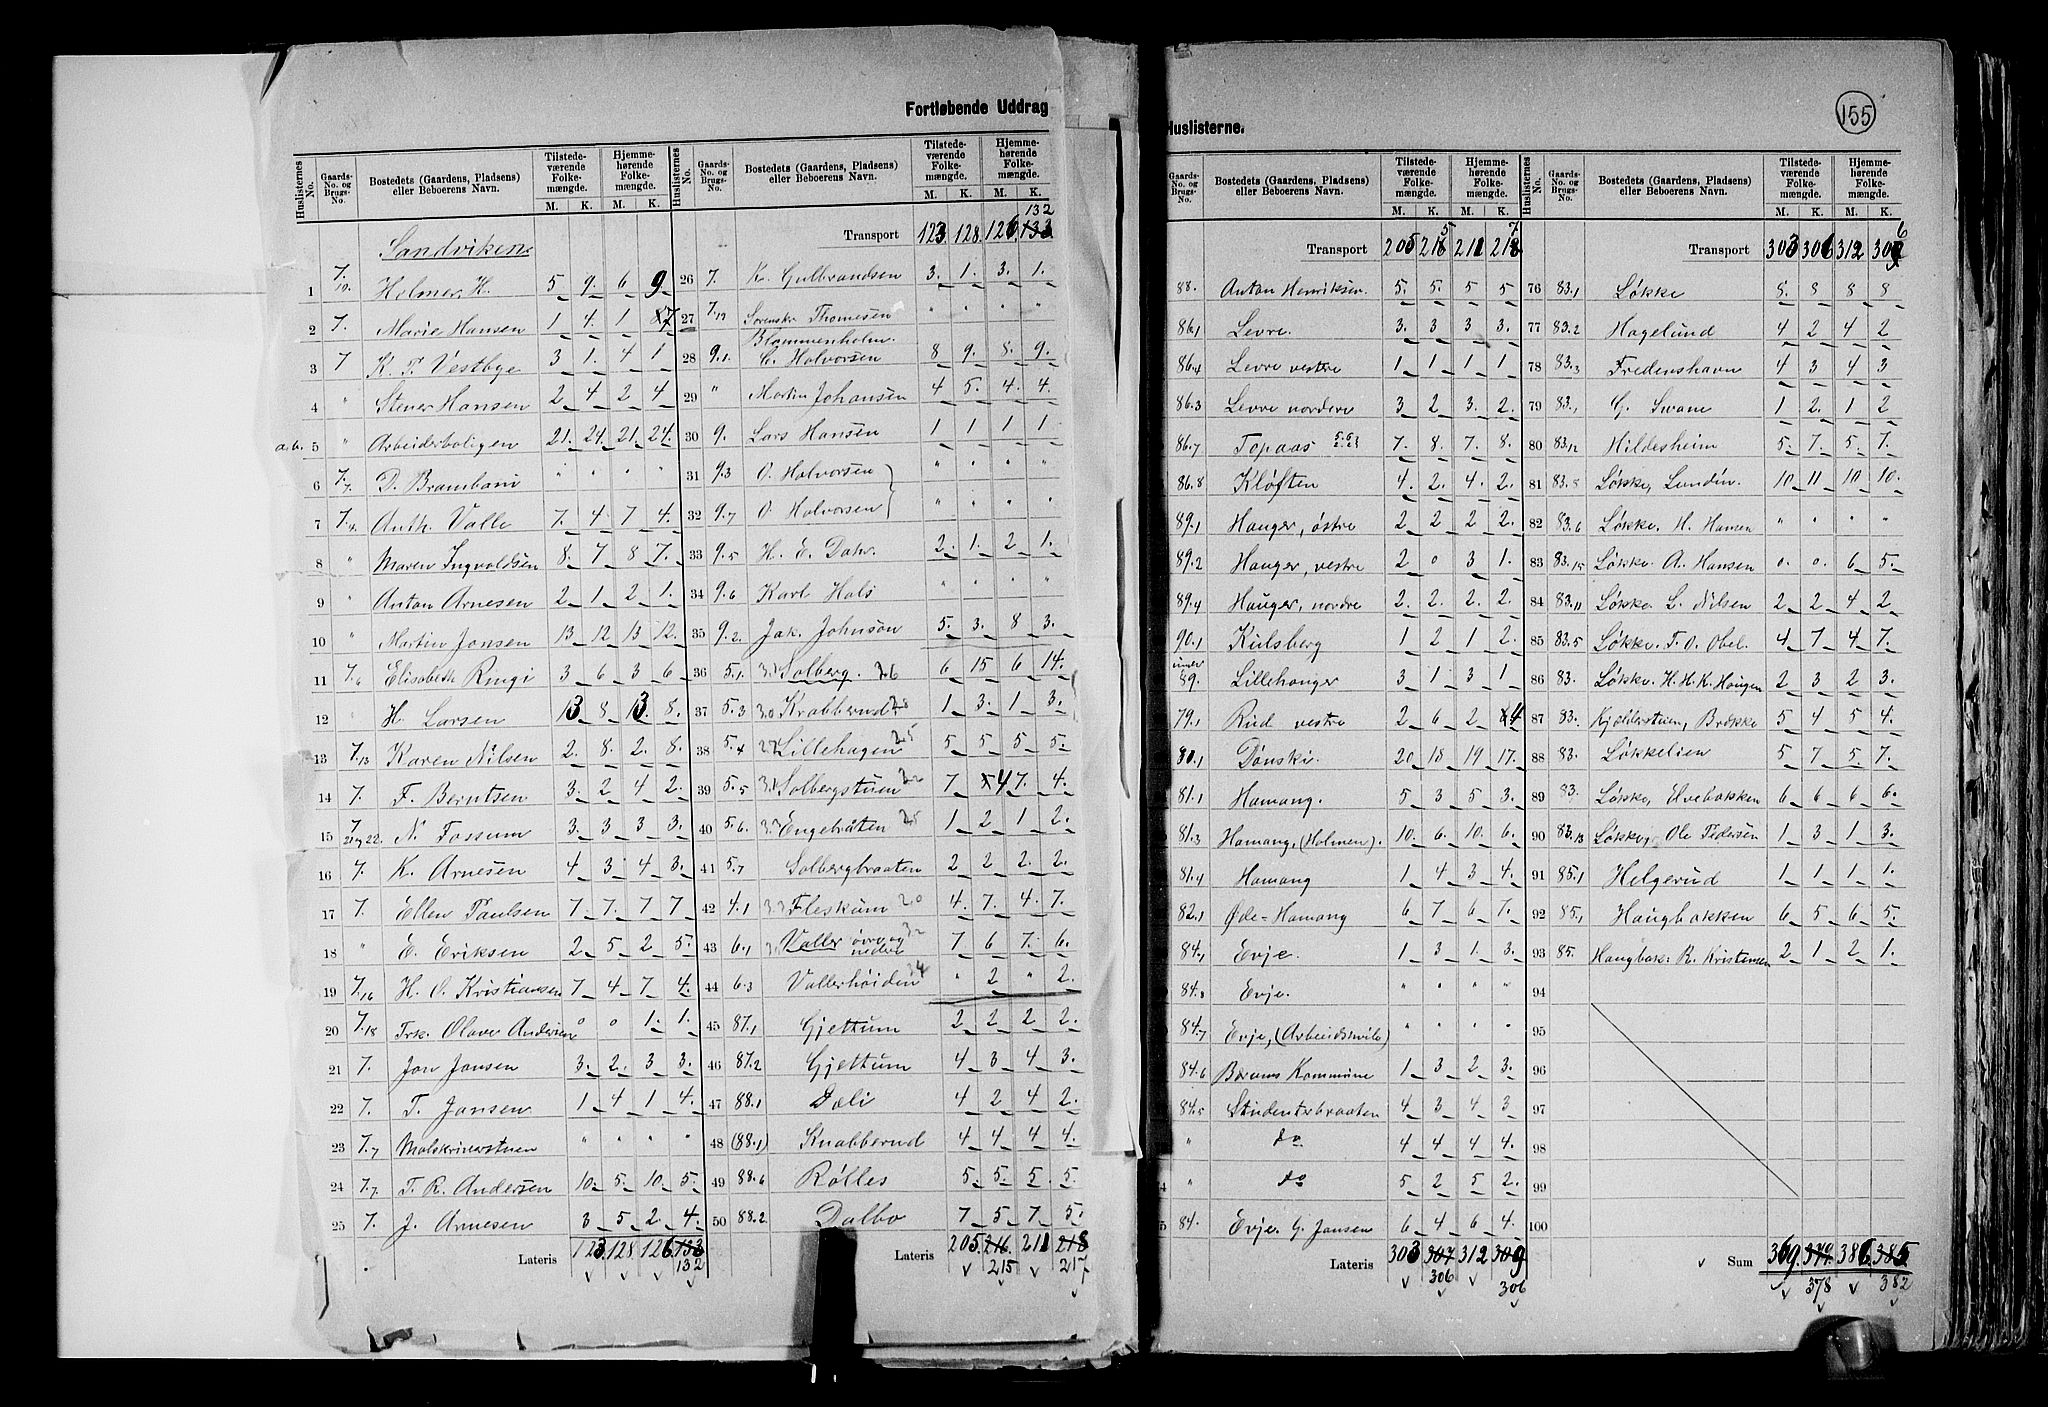 155
Fortløbende Uddrag
Huslisternes No. Gaards-No. og Brugs-No. Bostedets (Gaardens, Pladsens) eller Beboerens Navn. Tilstedeværende Folkemængde. M. K. Hjemmehørende Folkemængde. M. K.
Sandviken
1 7/19. Helmer, H. 5 9. 6 9
2 7. Marie Hansen 1 4. 1 7
3 7 K. P. Vestbye 3 1. 4 1
4 " Stener Hansen 2 4 2 4
a.b. 5 " Arbeiderboligen 21. 24. 21. 24.
6 7/7. D. Brambani " " " "
7 7/4. Anth. Valle 7. 4 7 4.
8 " Maren Ingvoldsen 8. 7 8 7.
9 " Anton Arnesen 2 1 2 1.
10 " Martin Jonsen 13 12 13 12.
11 7/6 Elisabeth Ringi 3 6 3 6
12 " H. Larsen 13 8 13. 8.
13 7/13 Karen Nilsen 2. 8 2. 8.
14 7. F. Berntsen 3. 2 4 2.
15 7/21 og 22. N. Fossum 3. 3 3 3.
16 7. K. Arnesen 4 3 4 3.
17 7. Ellen Paulsen 7 7. 7. 7
18 " E. Eriksen 2 5 2 5.
19 7/16 H. O. Kristiansen 7 4 7 4.
20 7/18 Frk. Olava Andersen 0 0 1 1.
21 7. Jon Jonsen 3. 2 3 3.
22 7. T. Jansen 1 4 1 4.
23 7/7 Malskriverstuen " " " "
24 7/7. T. R. Andersen 10. 5 10. 5.
25 7. J. Arnesen 3 5 2 4.
Lateris 123. 128 126. 133
132
Huslisternes No. Gaards-No. og Brugs-No. Bostedets (Gaardens, Pladsens) eller Beboerens Navn. Tilstedeværende Folkemængde. M. K. Hjemmehørende Folkemængde. M. K.
132
Transport 123. 128. 126. 133
26 7. K. Gulbrandsen 3. 1. 3. 1.
27 7/12 Sorenskr Thomesen " " " "
Blommenholm.
28 9.1. C. Halvorsen 8 9. 8. 9.
29 " Martin Johansen 4 5. 4. 4.
30 9. Lars Hansen 1 1 1 1
31 9.3 O. Halvorsen " " " "
32 9.7 O. Halvorsen " " " "
33 9.5 H. E. Dahr. 2. 1. 2 1.
34 9.6 Karl Hals " " " "
35 9.2. Jak. Johnson 5. 3. 8 3.
36 5.1. Solberg. 26 6 15 6 14.
37 5.3 30 Krabberud 28 1 3. 1 3.
38 5.4 27 Lillehagen 25 5 5 5 5.
39 5.5 31 Solbergstuen 22 7 4 7. 4.
40 5.6. Engebråten 25 1 2 1 2.
41 5.7 Solbergbraaten 2 2 2. 2.
42 4.1 33 Fleskum 20 4. 7. 4. 7.
43 6.1 Valler øvre og nedre 32 7 6 7. 6.
44 6.3 Vallerhøiden 34 " 2 " 2.
45 87.1 Gjettum 2 2 2 2.
46 87.2 Gjettum 4 3 4 3.
47 88.1 Dæli 4 2 4 2.
48 (88.1) Knabberud 4 4 4 4.
49 88.6 Rølles 5. 5. 5 5.
50 88.2 Dalbo 7 5 7 5.
Lateris 205. 216. 211 218
215 217
Huslisterne.
Gaards-No. og Brugs-No. Bostedets (Gaardens, Pladsens) eller Beboerens Navn. Tilstedeværende Folkemængde. M. K. Hjemmehørende Folkemængde. M. K.
5 7
Transport 205 216 211 218
88. Anton Henriksen 5. 5. 5 5
86.1 Levre. 3. 3 3 3.
86.4 Levre vestre 1 1 1 1
86.3 Levre nordere 3 2 3. 2.
86.7 Topaas 7. 8. 7. 8.
86.8 Kløften 4. 2. 4. 2.
89.1 Hauger, østre 2 2 2 2.
89.2 Hauger, vestre 2 0 3 1.
89.4 Hauger, nordre 2. 2. 2. 2.
90.1 Kulsberg 1 2 1 2.
under 89. Lillehauger 3 1 3 1
79.1 Rud vestre 2 6 2 4
80.1 Dønski. 20 18 19 17.
81.1 Hamang. 5 3 5 3.
81.3 Hamang, (Holmen). 10. 6. 10 6.
81.4 Hamang 1 4 3 4.
82.1 Øde-Hamang 6 7 6 7.
84.1 Evje. 1 3 1. 3.
84.8 Evje. " " " "
84.7 Evje, (Arbeidshvile) " " " "
84.6 Bærums Kommune 1 3 2 3.
84.5 Studentsbraaten 4 3 4 3
" do 4 4 4 4.
" do 5 2 5 2.
84. Evje. G. Jansen 6 4 6 4.
Lateris 303 307 312 309
306 306
Huslisternes No. Gaards-No. og Brugs-No. Bostedets (Gaardens, Pladsens) eller Beboerens Navn. Tilstedeværende Folkemængde. M. K. Hjemmehørende Folkemængde. M. K.
6
Transport 303 306 312 309
76 83.1 Løkke 8. 8 8 8
77 83.2 Hagelund 4 2 4 2
78 83.3 Fredenshavn 4 3 4 3
79 83.1 G. Swane 1 2. 1 2
80 83.12 Hildesheim 5. 7. 5. 7.
81 83.8 Løkke, Lundin. 10 11 10 10.
82 83.6 Løkke. H. Hansen " " " "
83 83.15 Løkke. A. Hansen 0. 0. 6 5.
84 83.11 Løkke. L. Nilsen 2 2 4 2
85 83.5 Løkke. T. O. Obel. 4 7 4 7.
86 83. Løkke. H. H. K. Haugen 2 3 2 3.
87 83. Kjelderstuen, Brøkke 5 4 5 4.
88 83. Løkkelien 5 7 5 7.
89 83. Løkke, Elvebakken 6 6 6 6.
90 83.13 Løkke, Ole Pedersen 1 3 1 3.
91 85.1 Helgerud 1 1 1 1.
92 85.1 Haugbakken 6 5 6 5.
93 85. Haugbak: R. Kristensen 2 1 2 1.
94
95
96
97
98
99
100
Sum 369. 379. 386. 385
378 382